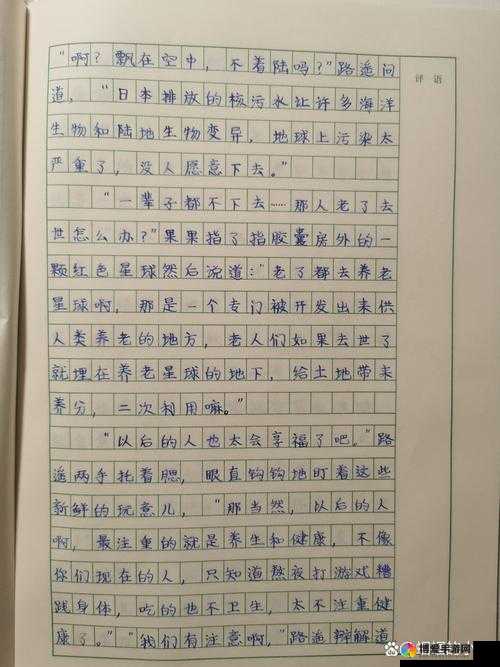 评语
“啊？飘在空中，不着陆吗？”路遥问
道，“日本排放的核污水让许多海洋
生物和陆地生物变异，地球上污染太
严重了，没人愿意下去。”
“一辈子都不下去……那人老了去
世怎么办？”果果指了指胶囊房外的一
颗红色星球然后说道：“老了都去养老
星球啊，那是一个专门被开发出来供
人类养老的地方，老人们如果去世了
就埋在养老星球的地下，给土地带来
养分，二次利用嘛。”
“以后的人也太会享福了吧。”路
遥两手托着腮，眼直钩钩地盯着这些
新鲜的玩意儿，“那当然，以后的人
啊，最注重的就是养生和健康，不像
你们现在的人，只知道熬夜打游戏糟
践身体，吃的也不卫生，太不注重健
康了。”“我们有注意啊，”路遥辩解道
博爱手游网